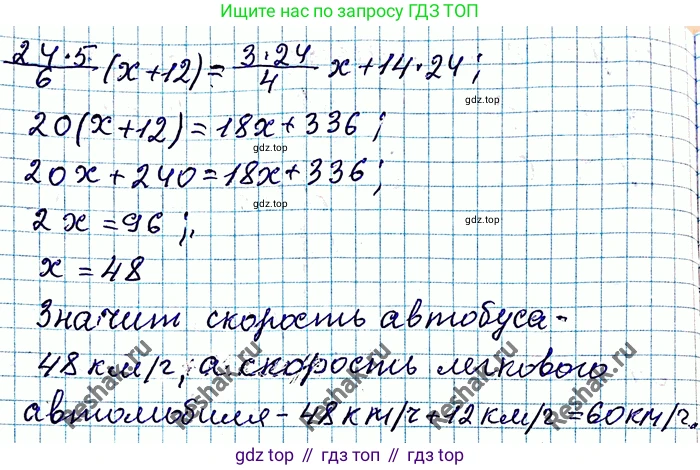 Ищите нас по запросу ГДЗ ТОП
24·5/6 (x+12) = 3·24/4 x+14·24;
gdz.top
20(x+12)=18x+336;
gdz.top
20x+240=18x+336;
gdz.top
gdz.top
2x=96;
x=48
Значит скорость автобуса-
48км/г, а скорость легкового
автомобиля-48км/ч+12км/г=60км/г.
Reshak.ru
Reshak.ru
Reshak.ru
Reshak.ru
gdz.top
gdz.top
Смотри решебники на gdz.top // гдз.топ